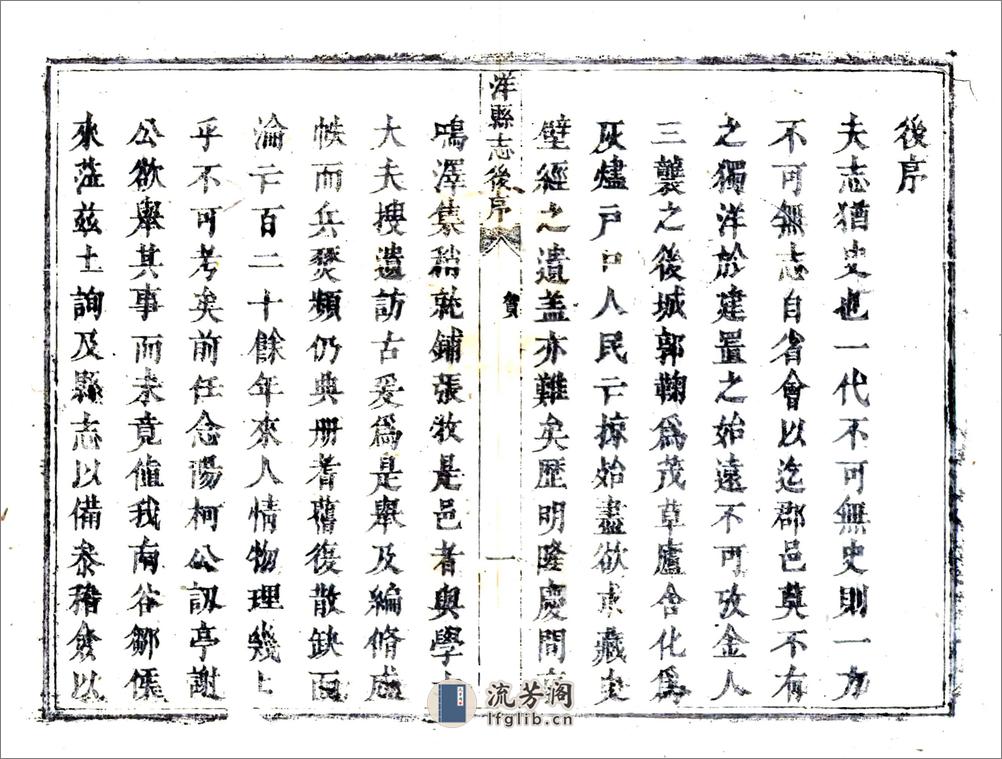 後序
夫志猶史也一代不可無史則一方
不可無志自省會以迄郡邑莫不有
之獨洋於建置之始遠不可攷金人
三襲之後城郭鞠為茂草廬舍化為
灰燼戶口人民亡掠始盡欲求藏史
壁經之遺盖亦難矣歷明隆慶間
洋縣志後序
賀
一
鳴澤集稍就鋪張牧是邑者與學
大夫搜遺訪古爰為是舉及編脩成
帙而兵燹頻仍典册耆舊復散缺而
淪亡百二十餘年來人情物理幾
乎不可考矣前任念陽柯公訒亭謝
公欲舉其事而未竟值我南谷鄒侯
來蒞兹土詢及縣志以備叅稽僉以
流芳阁
lfglib.cn